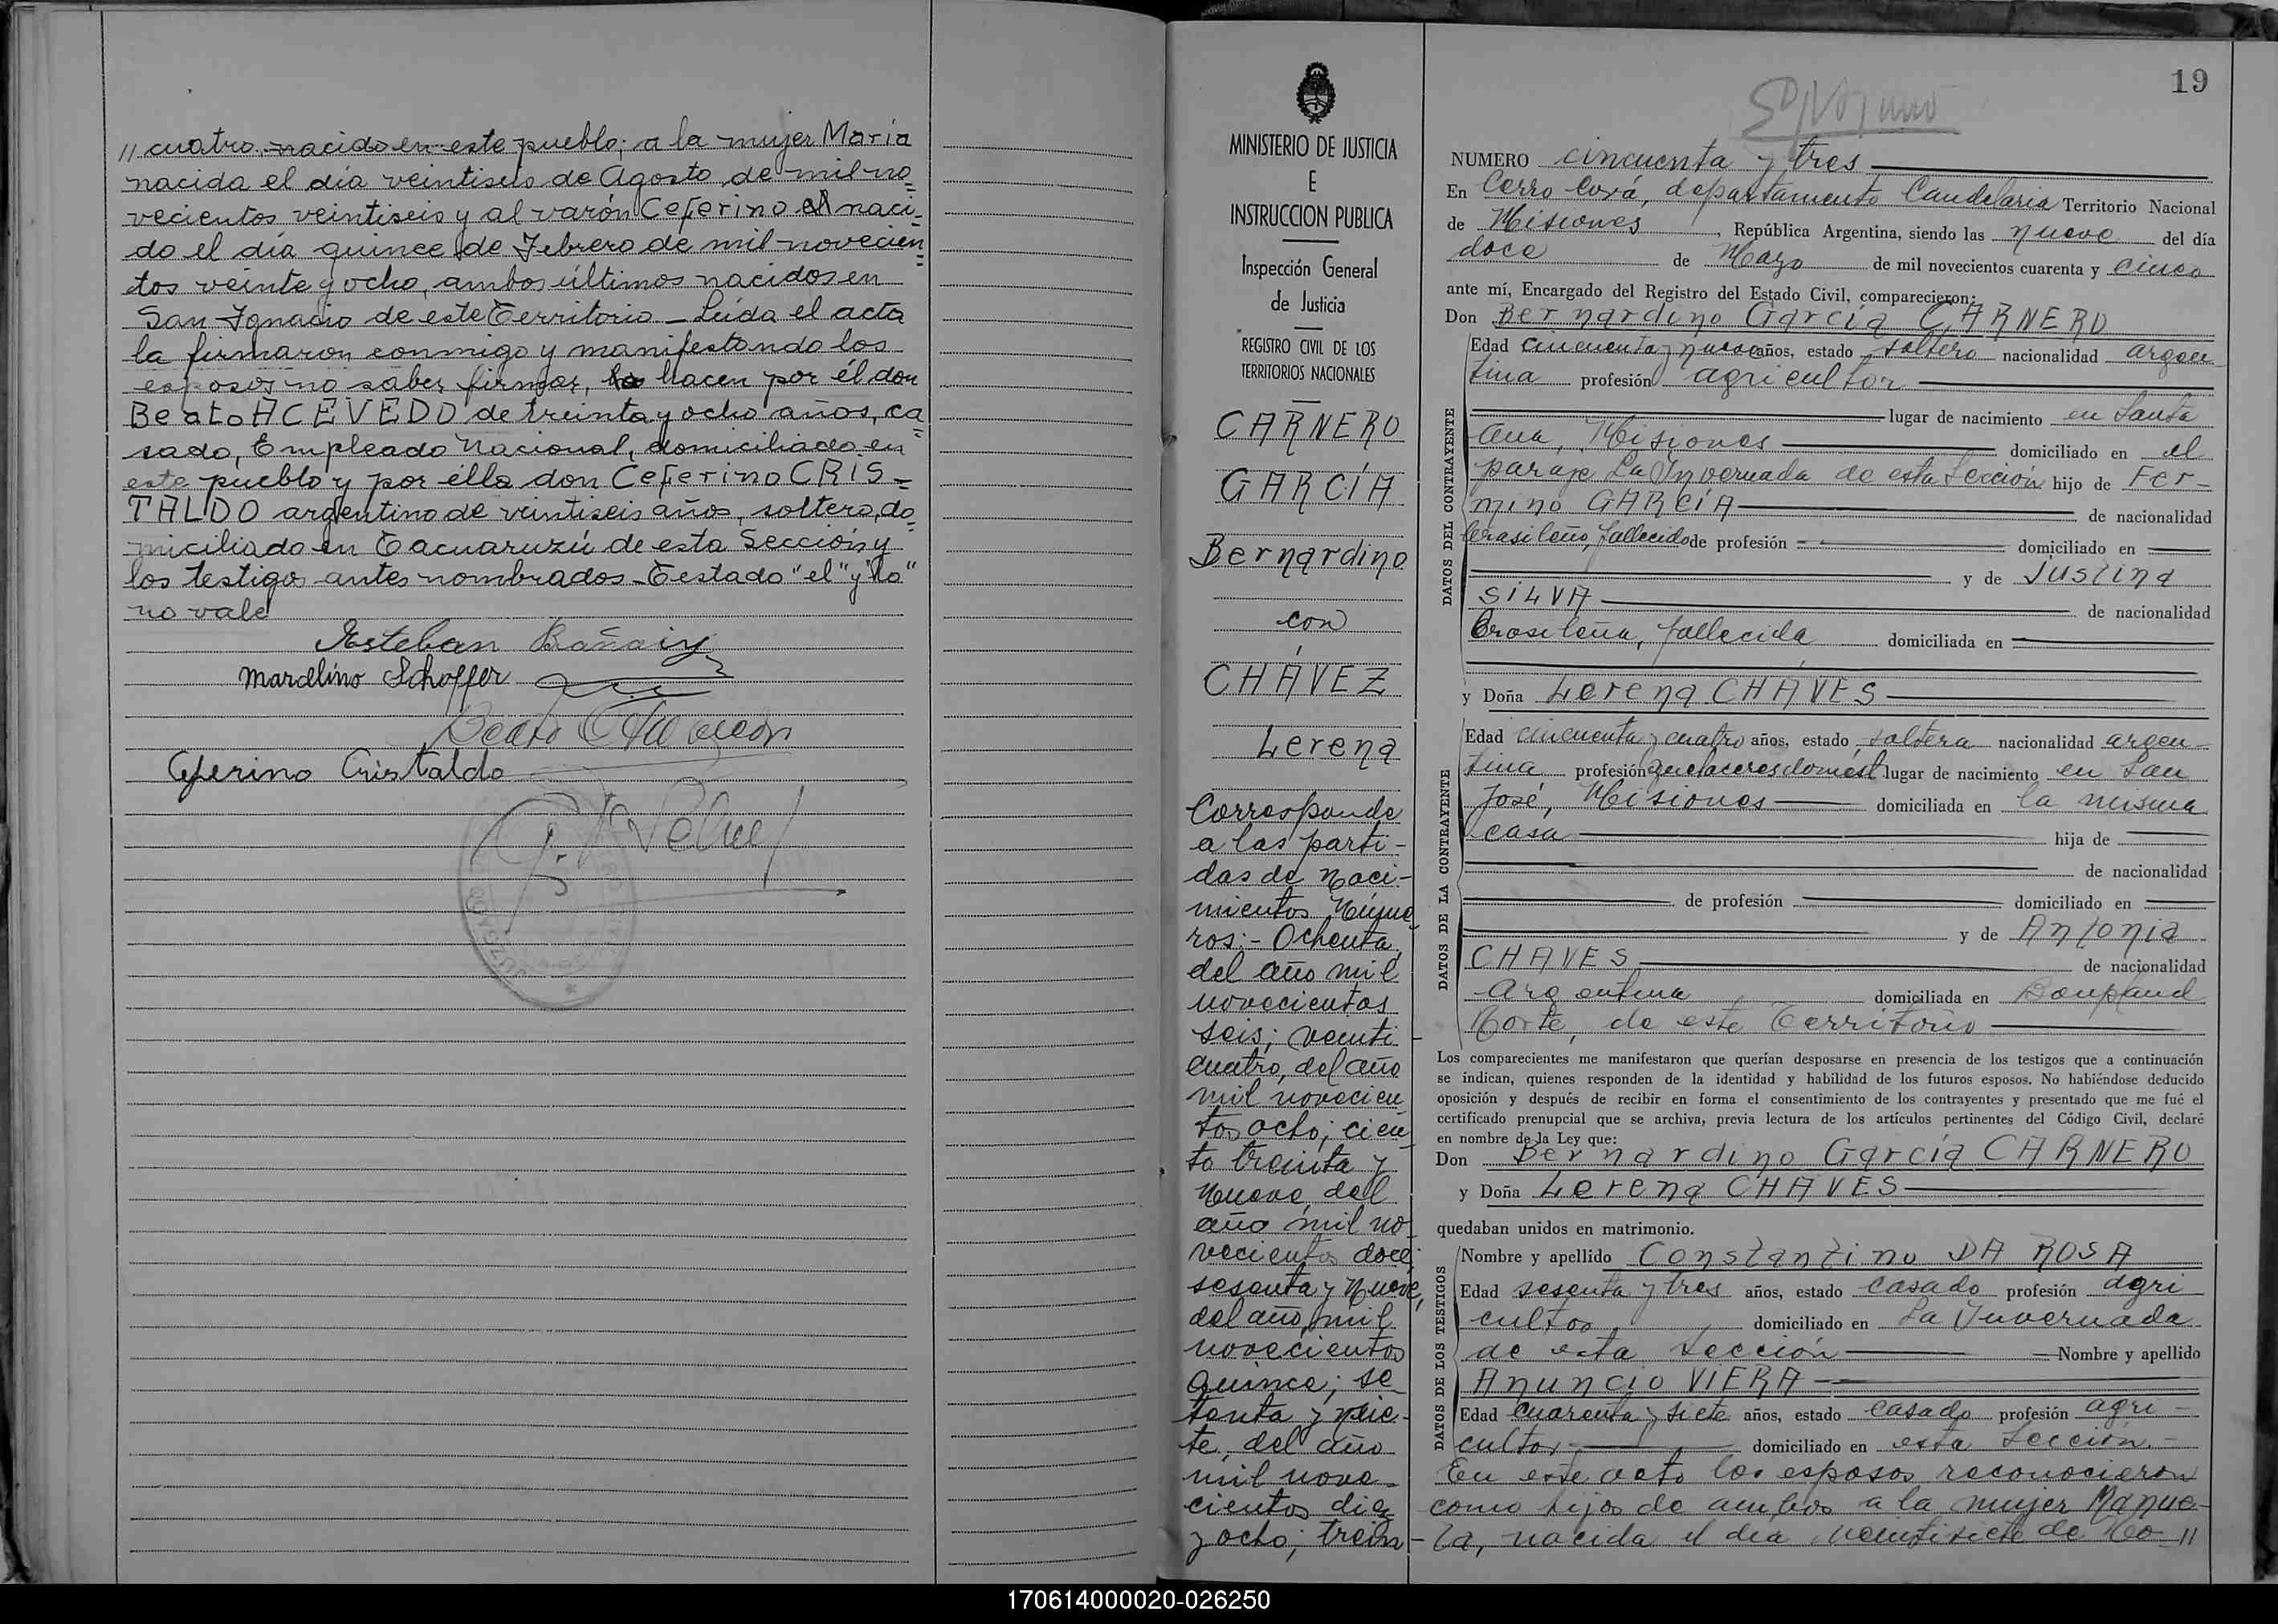 // cuatro, nacido en este pueblo; a la mujer María
nacida el día veintiseis de Agosto de mil no=
vecientos veintiseis y al varón Ceferino el naci=
do el día quince de Febrero de mil novecien=
tos veinte y ocho, ambos últimos nacidos en
San Ignacio de este Territorio - Leída el acta
la firmaron conmigo y manifestando los
esposos no saber firmar, lo hacen por él don
Beato ACEVEDO de treinta y ocho años, ca=
sado, Empleado Nacional, domiciliado en
este pueblo y por élla don Ceferino CRIS=
TALDO argentino de veintiseis años, soltero, do=
miciliado en Tacuaruzú de esta Sección y
los testigos antes nombrados - Testado "el" y "lo"
no vale
Esteban
Marcelino Schoffer
Beato
Ceferino Cristaldo
19
MINISTERIO DE JUSTICIA
E
INSTRUCCION PUBLICA
Inspección General
de Justicia
REGISTRO CIVIL DE LOS
TERRITORIOS NACIONALES
CARNERO
GARCÍA
Bernardino
con
CHÁVEZ
Lerena
Corresponde
a las parti-
das de Naci-
mientos Núme-
ros:- Ochenta,
del año mil
novecientos
seis; veinti-
cuatro, del año
mil novecien-
tos ocho; cien-
to treinta y
nueve, del
año mil no-
vecientos doce;
sesenta y nueve,
del año mil
novecientos
quince; se-
tenta y siete,
del año
mil nove-
cientos diez
y ocho; trein-
NUMERO cincuenta y tres
En Cerro Corá, departamento Candelaria Territorio Nacional
de Misiones, República Argentina, siendo las nueve del día
doce de Mayo de mil novecientos cuarenta y cinco
ante mí, Encargado del Registro del Estado Civil, comparecieron:
Don Bernardino García CARNERO
Edad cincuenta y nueve años, estado soltero nacionalidad argen-
tina profesión agricultor
lugar de nacimiento en Santa
Ana, Misiones domiciliado en el
paraje La Invernada de esta Sección hijo de Fer-
mino GARCÍA de nacionalidad
brasileño, fallecido de profesión domiciliado en
y de Justina
SILVA de nacionalidad
brasileña, fallecida domiciliada en
y Doña Lerena CHÁVES
Edad cincuenta y cuatro años, estado soltera nacionalidad argen-
tina profesión quehaceres domést. lugar de nacimiento en San
José, Misiones domiciliada en la misma
casa hija de
de nacionalidad
de profesión domiciliado en
y de Antonia
CHAVES de nacionalidad
Argentina domiciliada en Bonpland
Norte, de este Territorio
Los comparecientes me manifestaron que querían desposarse en presencia de los testigos que a continuación
se indican, quienes responden de la identidad y habilidad de los futuros esposos. No habiéndose deducido
oposición y después de recibir en forma el consentimiento de los contrayentes y presentado que me fué el
certificado prenupcial que se archiva, previa lectura de los artículos pertinentes del Código Civil, declaré
en nombre de la Ley que:
Don Bernardino García CARNERO
y Doña Lerena CHAVES
quedaban unidos en matrimonio.
Nombre y apellido Constantino DA ROSA
Edad sesenta y tres años, estado casado profesión agri
cultor domiciliado en La Invernada
de esta Sección Nombre y apellido
Anuncio VIERA
Edad cuarenta y siete años, estado casado profesión agri-
cultor domiciliado en esta Sección.-
En este acto los esposos reconocieron
como hijos de ambos a la mujer Manue-
la, nacida el día veintisiete de No //
DATOS DEL CONTRAYENTE
DATOS DE LA CONTRAYENTE
DATOS DE LOS TESTIGOS
170614000020-026250